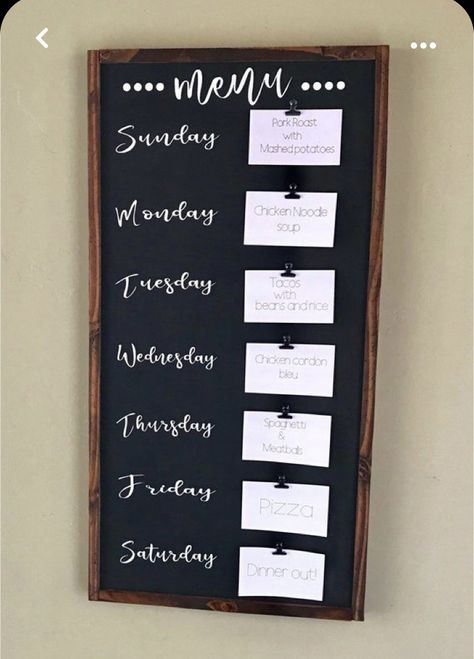 menu
Sunday
Pork Roast
with
Mashed potatoes
Monday
Chicken Noodle
soup
Tuesday
Tacos
with
beans and rice
Wednesday
Chicken cordon
bleu
Thursday
Spaghetti
&
Meatballs
Friday
Pizza
Saturday
Dinner out!